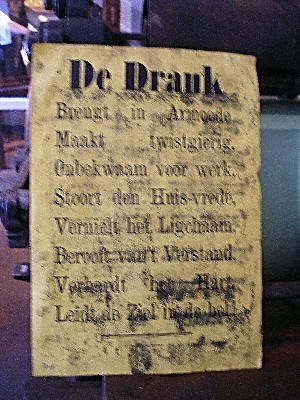 De Drank
Brengt in Armoede.
Maakt twistgierig.
Onbekwaam voor werk.
Stoort den Huis-vrede.
Vernielt het Ligchaam.
Berooft van't Verstand.
Verhardt het Hart.
Leidt de Ziel in de hel!